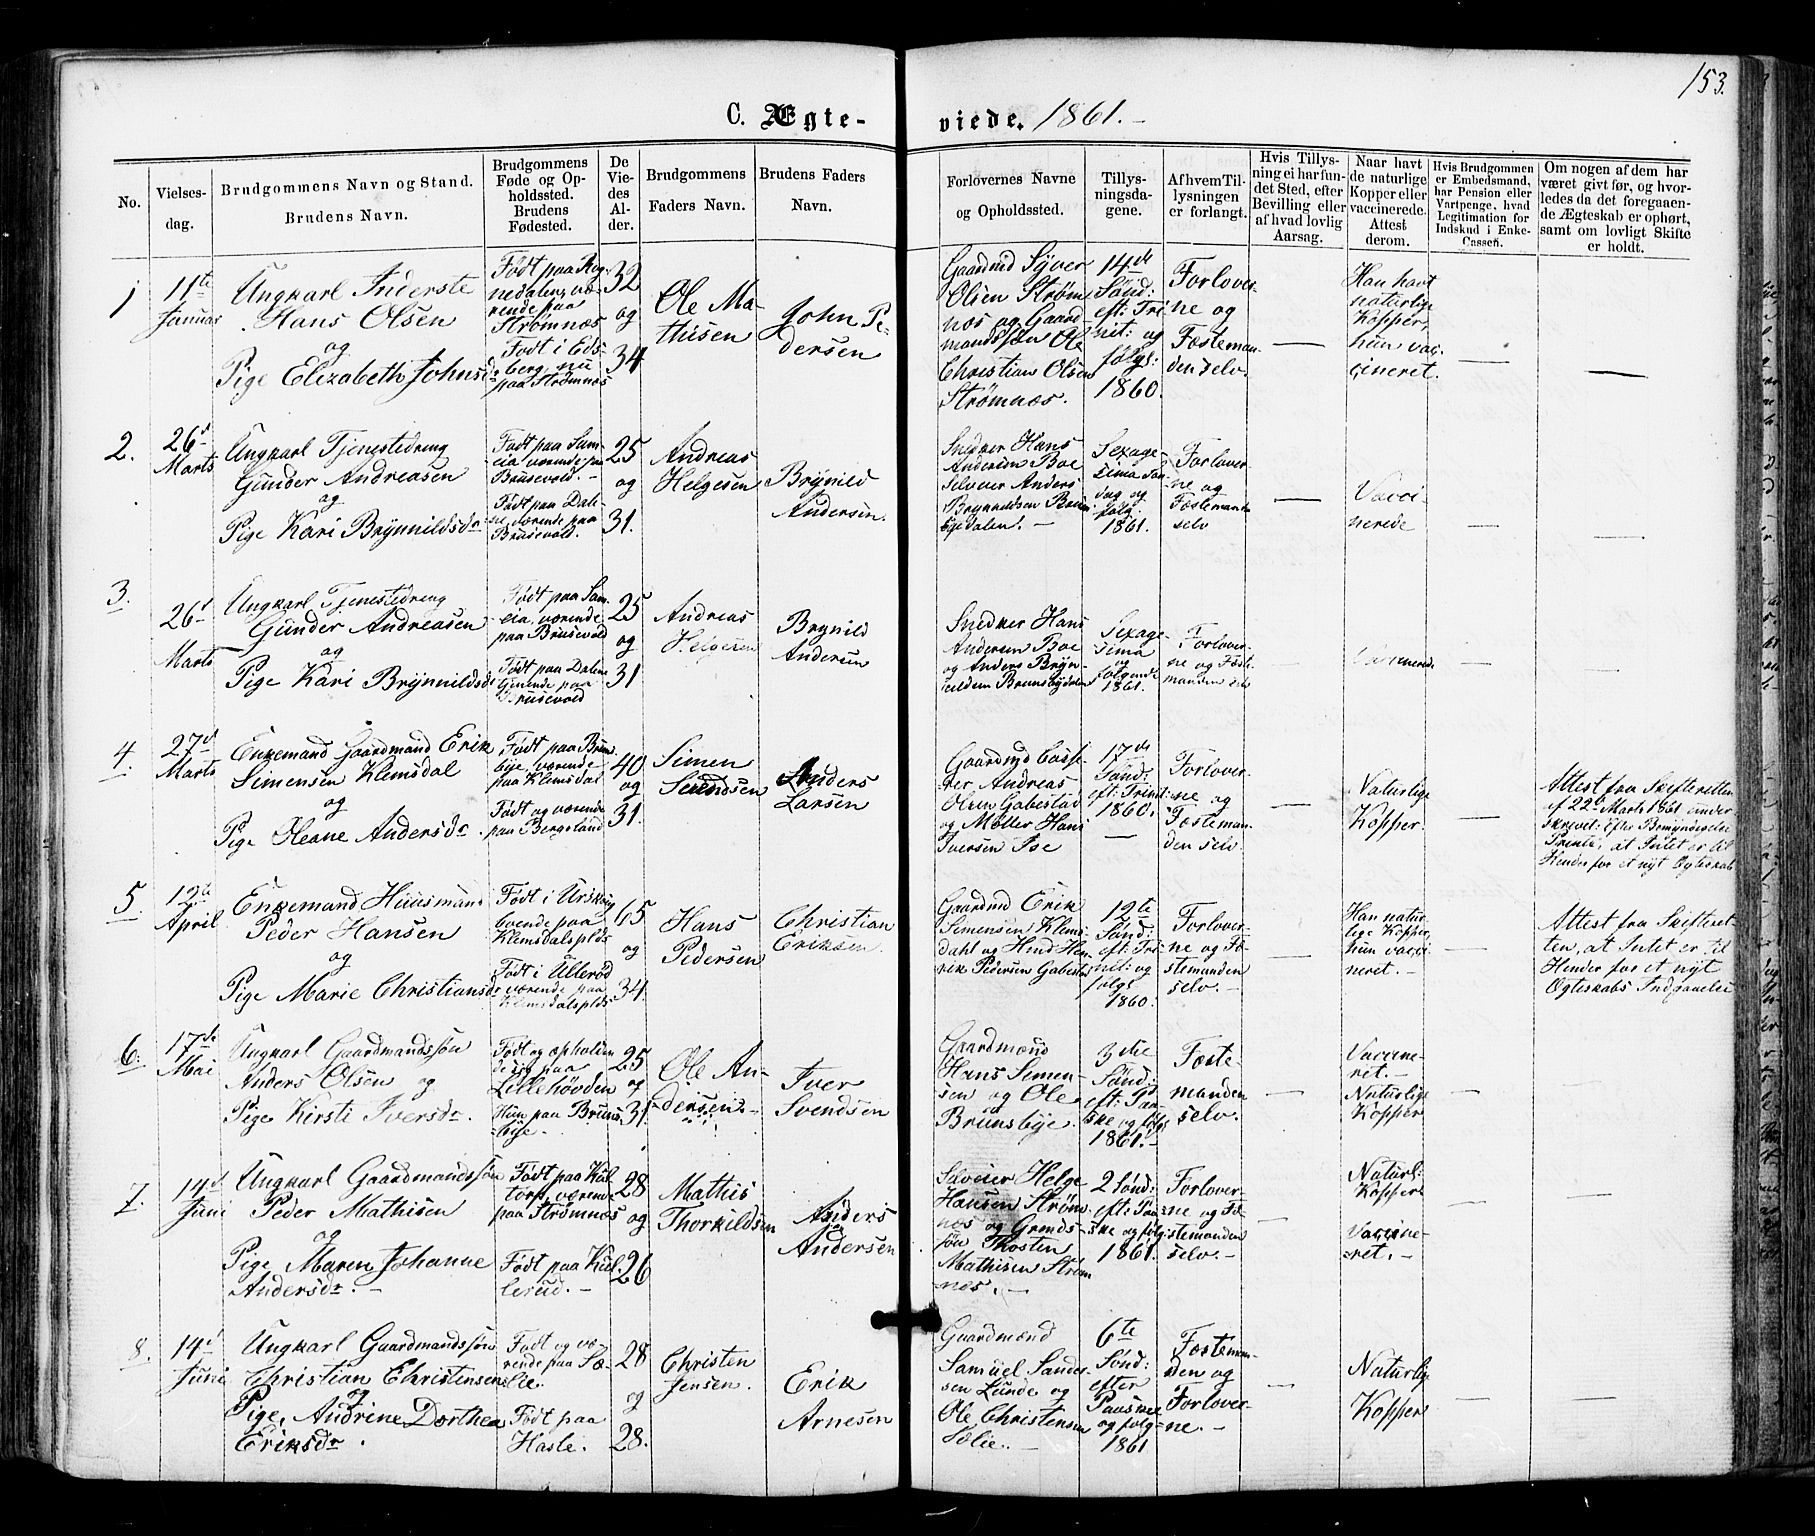 153.
C. Ægte-
viede. 1861.-
No.
Vielses-
dag.
Brudgommens Navn og Stand.
Brudens Navn.
Brudgommens
Føde og Op-
holdssted.
Brudens
Fødested.
De
Vie-
des
Al-
der.
Brudgommens
Faders Navn.
Brudens Faders
Navn.
Forlovernes Navne
og Opholdssted.
Tillys-
ningsda-
gene.
Af hvem Til-
lysningen
er forlangt.
Hvis Tillys-
ning ei har fun-
det Sted, efter
Bevilling eller
af hvad lovlig
Aarsag.
Naar havt
de naturlige
Kopper eller
vaccinerede.
Attest
derom.
Hvis Brudgommen
er Embedsmand,
har Pension eller
Vartpenge, hvad
Legitimation for
Indskud i Enke-
Cassen.
Om nogen af dem har
været givt før, og hvor-
ledes da det foregaaen-
de Ægteskab er ophørt,
samt om lovligt Skifte
er holdt.
1
11te
Januar
Ungkarl Inderste
Hans Olsen
og
Pige Elizabeth Johnsd.
Født paa
nedalen, væ-
rende paa
Strømnæs
Født i Eds-
berg, nu
paa Strømnæs
32
og
34
Ole Ma-
thisen
John Pe-
dersen
Gaardmd Syver
Olsen Strøm-
næs og Gaard-
mandssøn Ole
Christian Olsen
Strømnæs.
14de
Sønd:
eft: Tri
nit: og
følgs:
1860.
Forlover-
ne og
Fæsteman-
den selv.
Han havt
naturlige
Kopper,
hun vac-
cineret.
2.
26d
Marts
Ungkarl Tjenestedreng
Gunder Andreasen
og
Pige Kari Brynnildsdr
Født paa Sam-
eia, værende paa
Brusevold.-
Født paa Dale-
ne, værende paa
Brusevold.
25
og
31.
Andreas
Helgesen
Brynild
Andersen.
Snedker Hans
Andersen Boe
Selveier Anders
Brynnildsen
bydalen.-
Sexage-
sima Søn-
dag og
følg.
1861.
Forlover-
ne og
Fæstemanden
selv
Vacci-
nerede
3.
26d
Marts
Ungkarl Tjenestedreng
Gunder Andreasen
og
Pige Kari Brynnildsd:
Født paa Sam-
eia, værende
paa Brusevold
Født paa Dalene
værende paa
Brusevold
25
og
31
Andreas
Helgesen
Brynild
Andersen
Snedker Hans
Andersen Boe
og Anders Bryn-
nildsen Brunsbydalen
Sexage-
sima
og
følgende
1861.
Forlover-
ne og Fæste-
manden selv
Vaccinerede.
4.
27d
Marts
Enkemand Gaardmand Erik
Simensen Klemsdal
og
Pige Oleane Andersdr
Født paa Bruns-
bye, værende
paa Klemsdal
Født og værende
paa Bergeland
40
og
31.
Simen
Svendsen
Anders
Larsen
Gaardmd Casse-
rer Andreas
Olsen Gabestad
og Møller Hans
Iversen Boe
17de
Sønd:
eft: Trinit:
1860.
Forlover-
ne og
Fæsteman-
den selv.
Naturlige
Kopper.
Attest fra Skifteretten
af 22d Marts 1861 under-
skrevet: Efter Bemyndigelse
Prente, at Intet er til
Hinder for et nyt Egteskab
5.
12te
April
Enkemand Huusmand
Peder Hansen
og
Pige Marie Christiansd:
Født i Urskoug
boende paa
Klemsdalsplds
Født i Ullerød
værende paa
Klemsdalsplds
65
og
34.
Hans
Pedersen
Christian
Eriksen.
Gaardmd Erik
Simensen Klems-
dahl og Hmd Hen-
rik Pedersen Gabestad
12te
Sønd:
eft: Tri-
nit: og
følgs
1860.
Forlover-
ne og Fæ-
stemanden
selv.-
Han natur-
lige Kopper,
hun vacci-
neret.-
Attest fra Skifteret-
ten, at Intet er til
Hinder for et nyt
Egteskabs Indgaaelse
6.
17de
Mai
Ungkarl Gaardmandssøn
Anders Olsen og
Pige Kirsti Iversdr
Født og opholden-
de sig paa
Lillehøvden
Hun paa Bruns-
bye.
25
og
31.
Ole An-
dersen.-
Iver
Svendsen
Gaardmænd
Hans Simen-
sen og Ole
Brunsbye.
3die
Sønd:
eft: Paa-
ske og følgs
1861.-
Fæste-
manden
selv.
Vaccine-
ret.-
Naturlige
Kopper
7.
14d
Juni
Ungkarl Gaardmandssøn
Peder Mathisen
og
Pige Maren Johanne
Andersdr.-
Født paa Kul-
torp, værende
paa Strømnæs
Født paa Kul-
lerud.-
28
og
26
Mathis
Thorkildsen
Anders
Andersen
Saveier Helge
Hansen Strøm-
næs og Grmds-
søn Thosten
Mathisen Strøm
næs.-
2 Sønd:
eft: Paa-
ske og følg.
1861.
Forlover-
ne og Fæ-
stemanden
selv.-
Naturl:
Kopper
Vaccine-
ret.-
8.
14d
Juni
Ungkarl Gaardmandssøn
Christian Christensen
og
Pige, Andrine Dorthea
Eriksdr.
Født og væ-
rende paa Sæ-
lie.
Født paa
Hasle.
28
og
28.
Christen
Jensen.
Erik
Arnesen
Gaardmænd
Samuel Sander-
sen Lunde og
Ole Christensen
Sælie.-
6te
Sønd:
efter
Paaske
og følg-
1861
Fæsteman-
den og
Forlover-
ne.-
Naturlige
Kopper